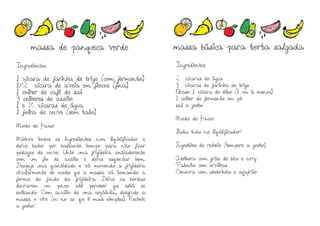 massa de panqueca verde
Ingredientes
1 xícara de farinha de trigo (com fermento)
1/2 xícara de aveia em flocos (fina)
1 colher de café de sal
3 colheres de azeite
1 e ½ xícaras de água
1 folha de couve (sem talo)
Modo de Fazer
Misture todos os ingredientes num liquidificador e
deixe bater por bastante tempo para não ficar
pedaços de couve. Unte uma frigideira antiaderente
com um fio de azeite e deixe esquentar bem.
Despeje uma quantidade e vá movendo a frigideira
circularmente de modo que a massa vá tomando a
forma do fundo da frigideira. Deixe as bordas
dourarem um pouco até perceber que está se
soltando. Com auxílio de uma espátula, desgrude a
massa e vire (ou no ar que é mais simples). Recheie
a gosto!
massa básica para torta salgada
Ingredientes
2 xícaras de água
3 xícaras de farinha de trigo
Quase 1 xícara de óleo (1 cm a menos)
1 colher de fermento em pó
sal a gosto
Modo de Fazer
Bata tudo no liquidificador!
Sugestões de recheio (tempere a gosto):
Abóbora com grão de bico e curry
Palmito com ervilhas
Cenoura com cebolinha e açafrão